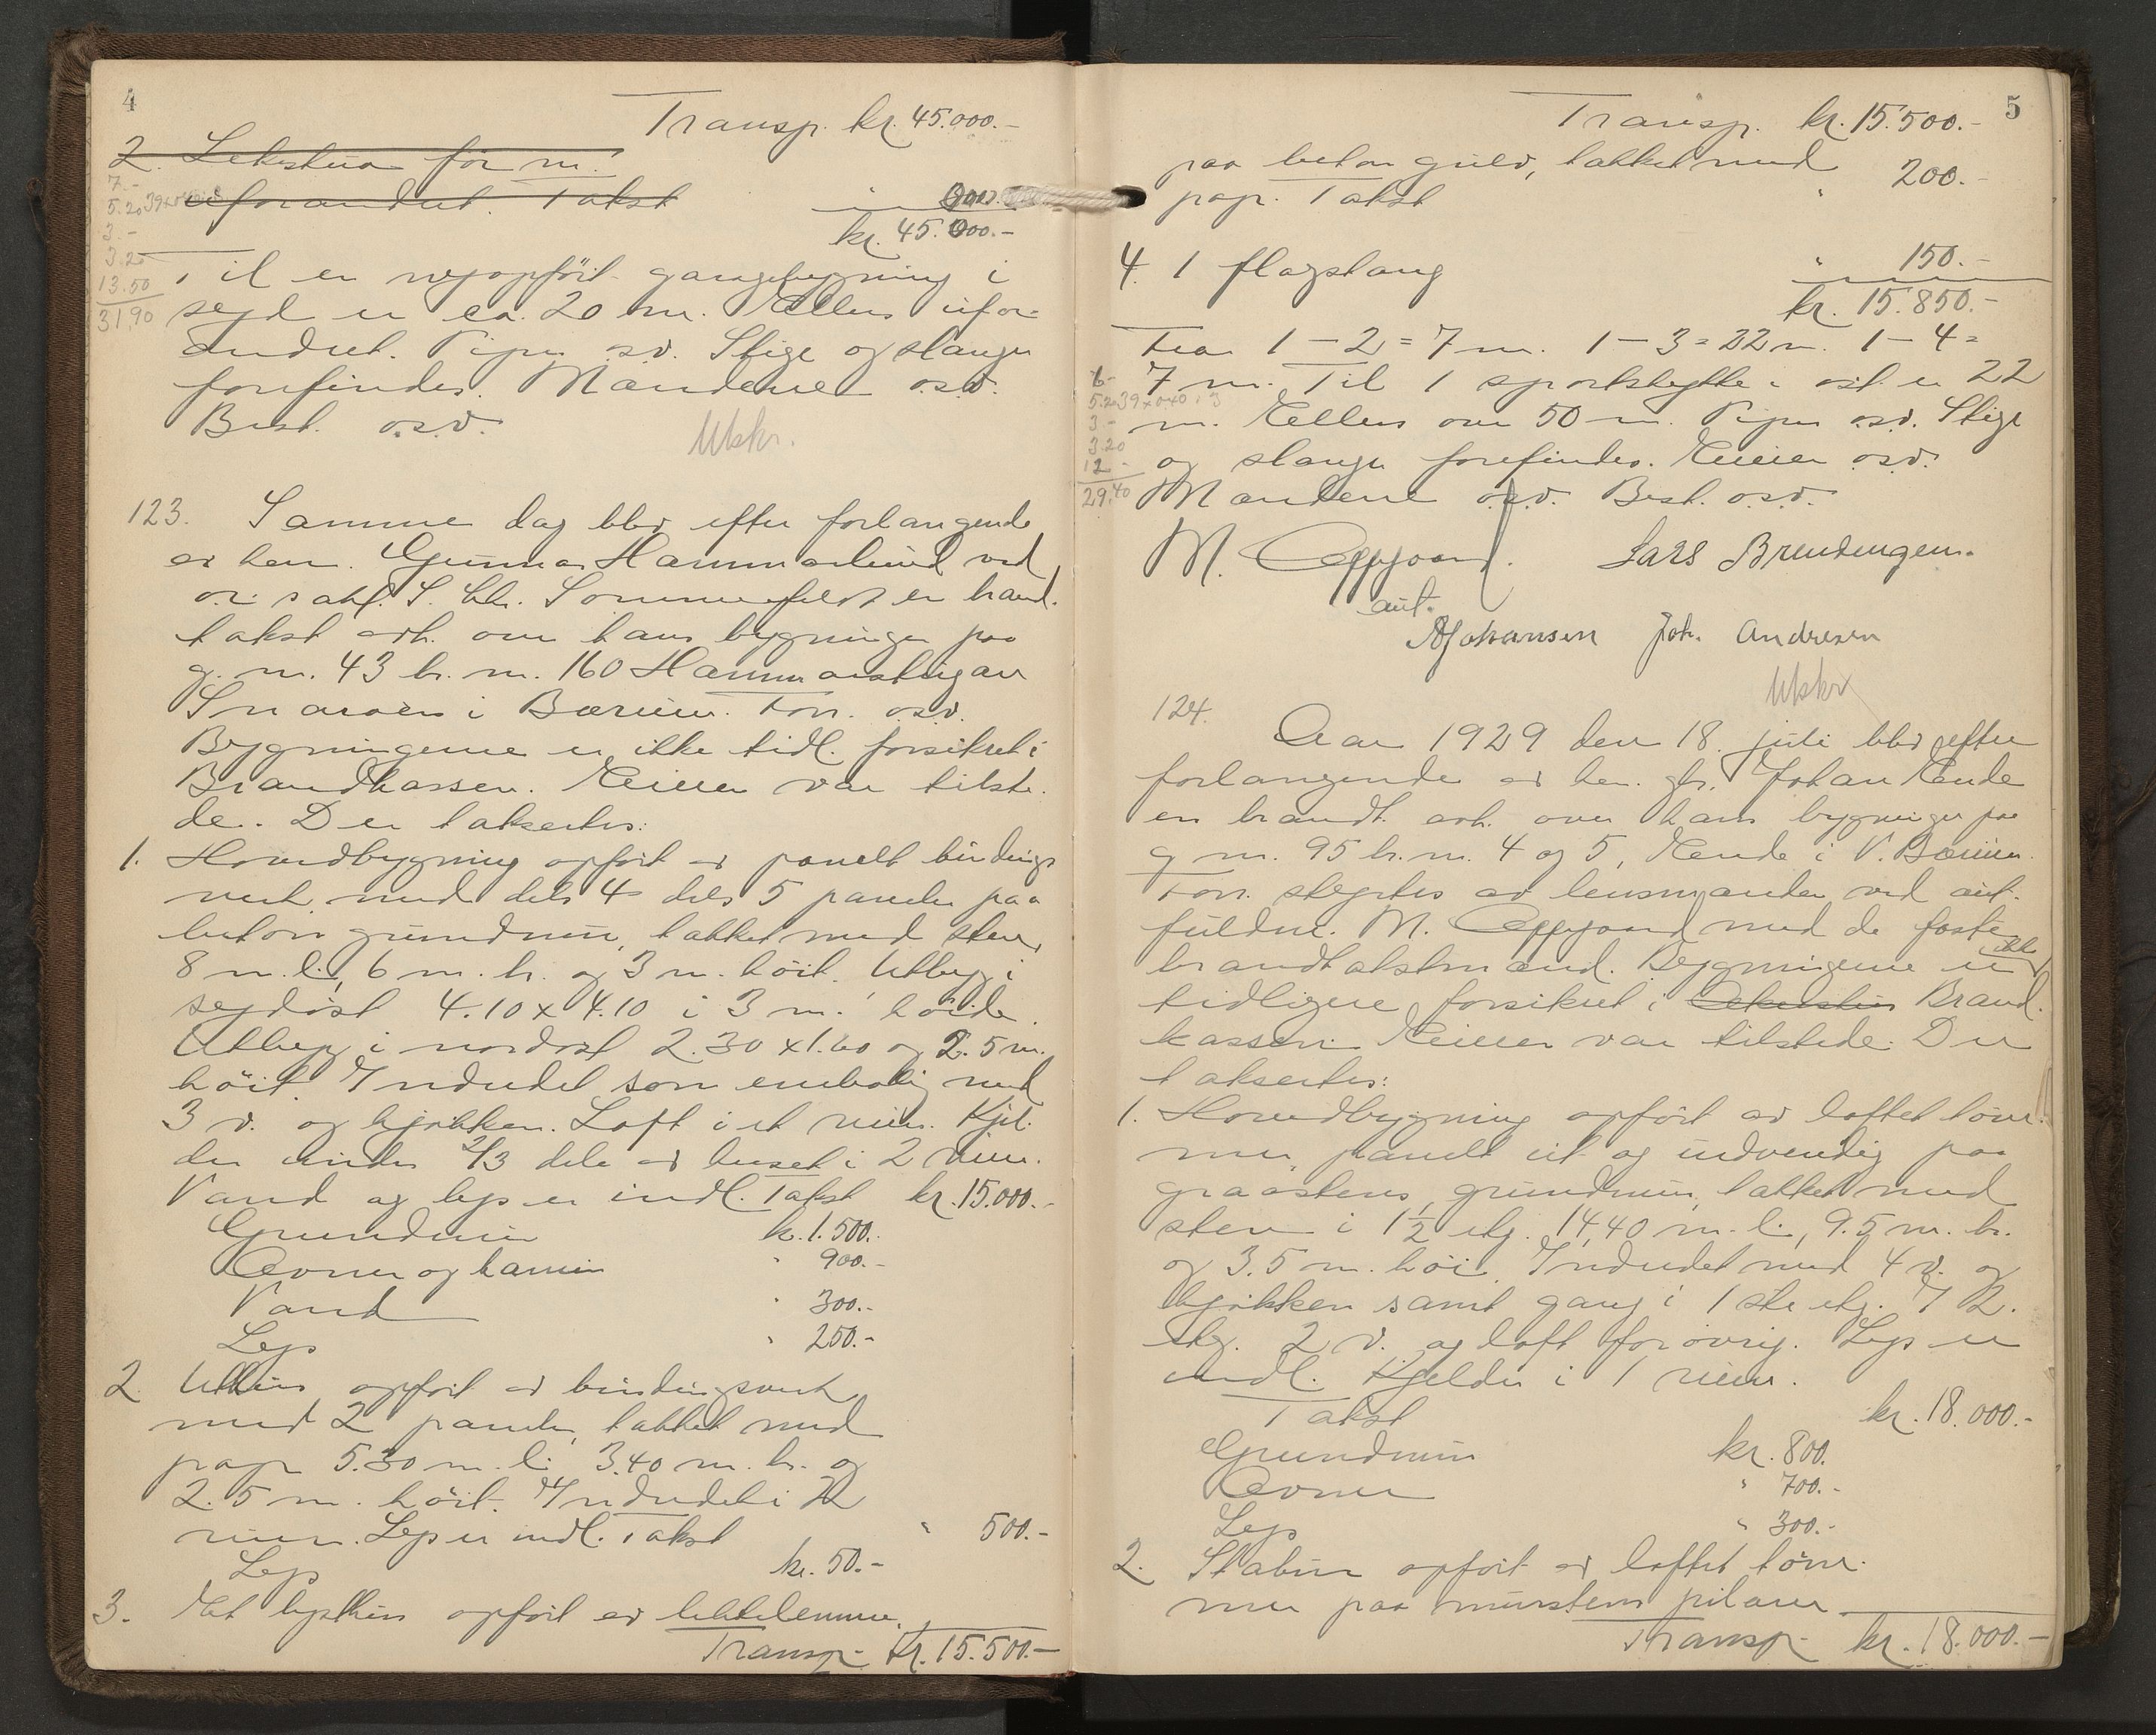 4
Transp. kr. 45.000.-
2. Lekestua för m.
uforandret. Takst
kr. 45.000.-
7.-
5.20 39x0.40
3.-
3.20
13.50
31,90
Til en nyopfört garagebygning i
syd er ca. 20 m. Ellers ufor-
andret. Piper osv. Stige og slanger
forefindes. Mændene o.s.v.
Best. o.s.v.
Utskr.
123. Samme dag blev efter forlangende
av herr Gunnar Hammarlund ved
o.r. sakf. S. Chr. Sommerfeldt en brand-
takst avh. over hans bygninger paa
g. nr. 43 br. nr. 160 Hammarstigan
Snarøen i Bærum. Forr. o.s.v.
Bygningerne er ikke tidl. forsikret i
Brandkassen. Eieren var tilste-
de. Der taksertes:
1. Hovedbygning opfört av panelt bindings
verk med dels 4 dels 5 paneler paa
beton grundmur, takket med sten,
8 m. l., 6 m. br. og 3 m. höit. Utbyg i
sydöst 4.10 x 4.10 i 3 m. höide.
Utbyg i nordost 2.30 x 1.60 og 2.5 m.
höit. Indredet som enebolig med
3 v. og kjøkken. Loft i et rum. Kjel-
der under 2/3 dele av huset i 2 rum.
Vand og lys er indl. Takst kr. 15.000.-
Grundmur kr. 1.500.-
Ovner og kamin " 900.-
Vand " 300.-
Lys " 250.-
2. Uthus opfört av bindingsverk
med 2 paneler, takket med
pap 5.30 m. l. 3.40 m. br. og
2.5 m. höit. Indredet i 2
rum. Lys er indl. Takst " 500.-
Lys kr. 50.-
3. Et lysthus opfört av lektelemmer
Transp. kr. 15.500.-
5
Transp. kr. 15.500.-
paa beton gulv, takket med
pap. Takst " 200.-
4. 1 flagstang " 150.-
kr. 15.850.-
Fra 1 - 2 = 7 m. 1 - 3 = 22 m. 1 - 4 =
7 m. Til 1 sportshytte i öst er 22
m. Ellers over 50 m. Piper osv. Stige
og slanger forefindes. Eieren o.s.v.
Mændene o.s.v. Best. o.s.v.
6-
5.20 39x0,40 i 3
3-
3.20
12-
29,40
M. Oppgaard. Lars Brendengen.
aut.
A Johansen Joh. Andresen
Utskr
124. Aar 1929 den 18. juli blev efter
forlangende av herr gbr. Johan Eende
en brandt. avh. over hans bygninger paa
g. nr. 95 br. nr. 4 og 5, Eende i V. Bærum.
Forr. styrtes av lensmanden ved aut.
fuldm. M. Oppgaard med de faste
brandtakstmænd. Bygningerne er ikke
tidligere forsikret i Brand-
kassen. Eieren var tilstede. Der
taksertes:
1. Hovedbygning opfört av laftet töm-
mer, panelt ut og indvendig paa
graastens grundmur, takket med
sten i 1 1/2 etg. 14,40 m. l., 9.5 m. br.
og 3.5 m. höi. Indredet med 4 v. og
kjøkken samt gang i 1 ste etg. I 2.
etg. 2 v. og loft forövrig. Lys er
indl. Kjelder i 1 rum.
Takst kr. 18.000.-
Grundmur kr. 800.
Ovner " 700.-
Lys " 300.-
2. Stabur opfört av laftet töm-
mer paa murstens pilarer
Transp. kr. 18.000.-